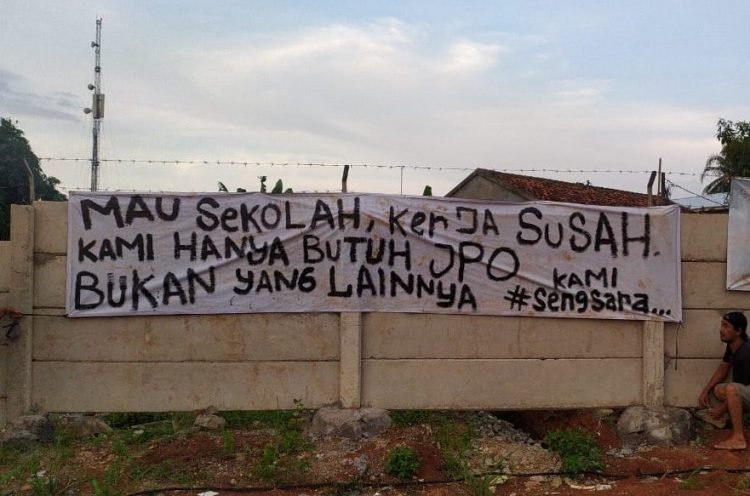 MAU SeKOLAH, KerJA SuSAH.
KAMI HANYA BUTUH JPO
BUKAN YANG LAINNYA
KAMI
#Sengsara...